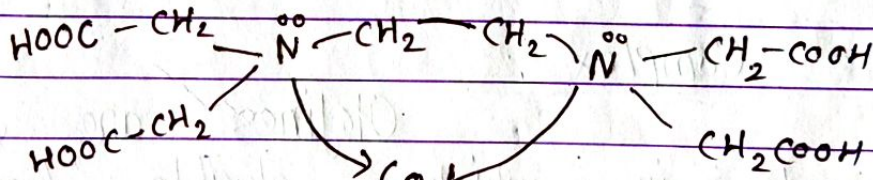 HOOC - CH2 - N̈ - CH2 - CH2 - N̈ - CH2 - COOH
HOOC - CH2 CH2COOH